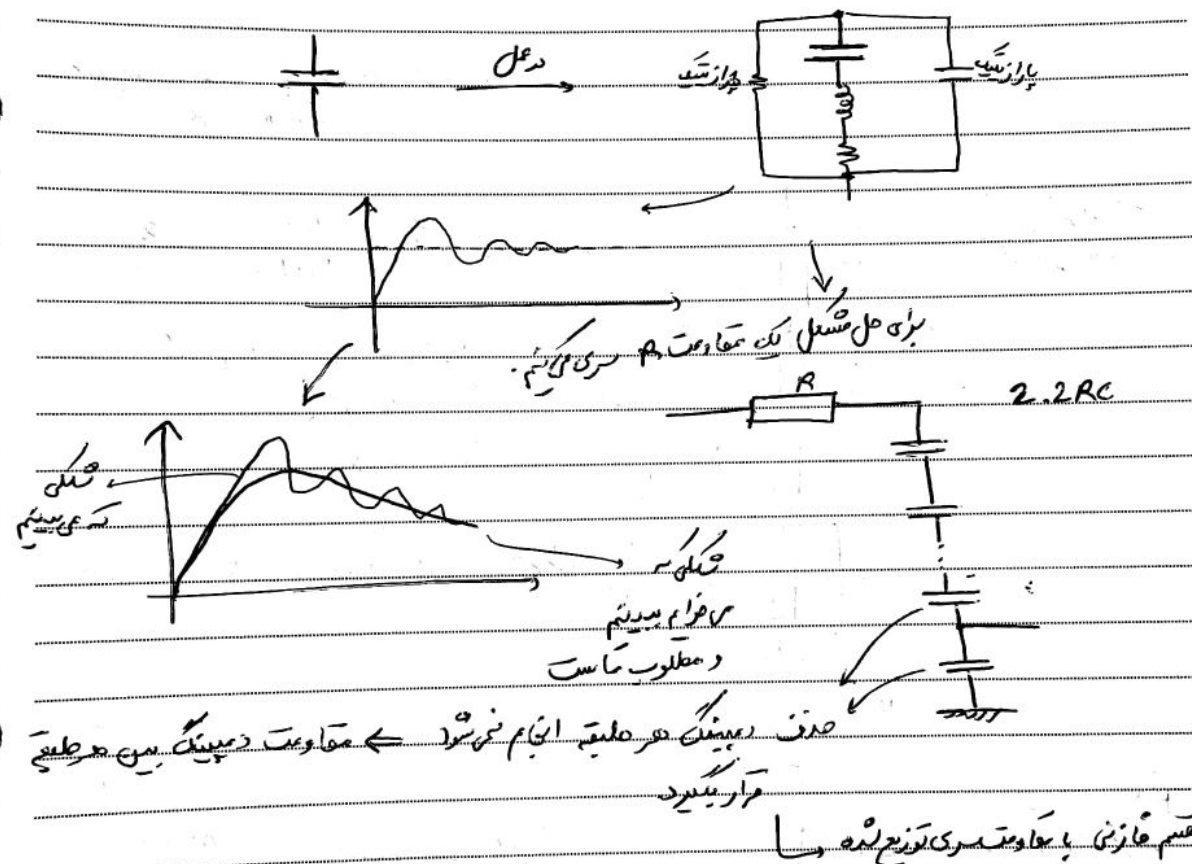 در عمل
پارازیتیک
پارازیتیک
برای حل مشکل یک مقاومت R سری می‌کنیم.
R
2.2RC
شکلی
که می‌بینیم
شکلی که
می‌خواهیم ببینیم
و مطلوب ماست
حذف دمپینگ هر طبقه انجام نمی‌شود ⇐ مقاومت دمپینگ بین هر طبقه
قرار بگیرد
مقسم خازنی با مقاومت سری توزیع شده